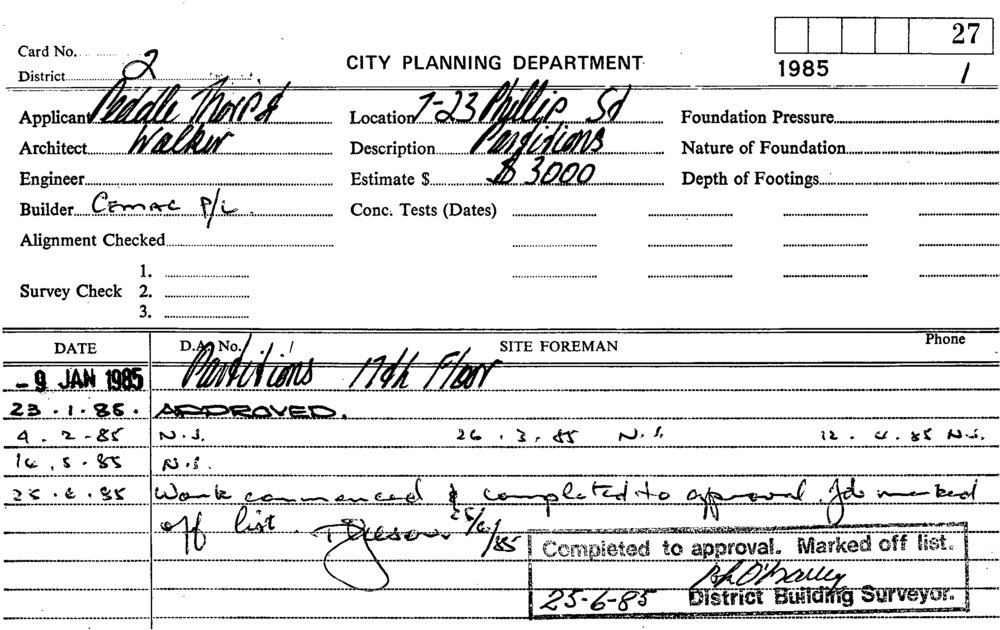 27
Card No.
CITY PLANNING DEPARTMENT
1985 1
District 2
Applicant Peddle Thorp &
Location 7-23 Phillip St
Foundation Pressure
Architect Walker
Description Partitions
Nature of Foundation
Engineer
Estimate $ $ 3000
Depth of Footings
Builder Cemac P/L.
Conc. Tests (Dates)
Alignment Checked
1.
Survey Check 2.
3.
DATE D.A. No. / SITE FOREMAN Phone
- 9 JAN 1985 Partitions 17th Floor
23.1.85. APPROVED.
4.2-85 N.S. 26.3.85 N.S. 12.4.85 N.S.
14.5.85 N.S.
25.6.85 Work commenced & completed to approval. Job marked
off list. 25/6/85
Completed to approval. Marked off list.
25-6-85 District Building Surveyor.